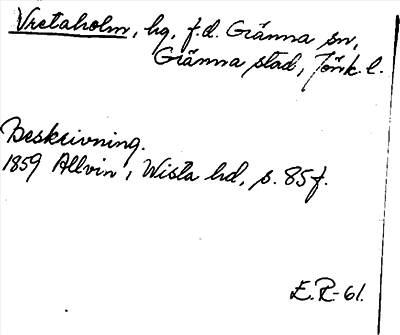 Vretaholm, hg, f.d. Gränna sn,
Gränna stad, Jönk. l.
Beskrivning.
1859 Allvin, Wista hd, s. 85 f.
E.R-61.